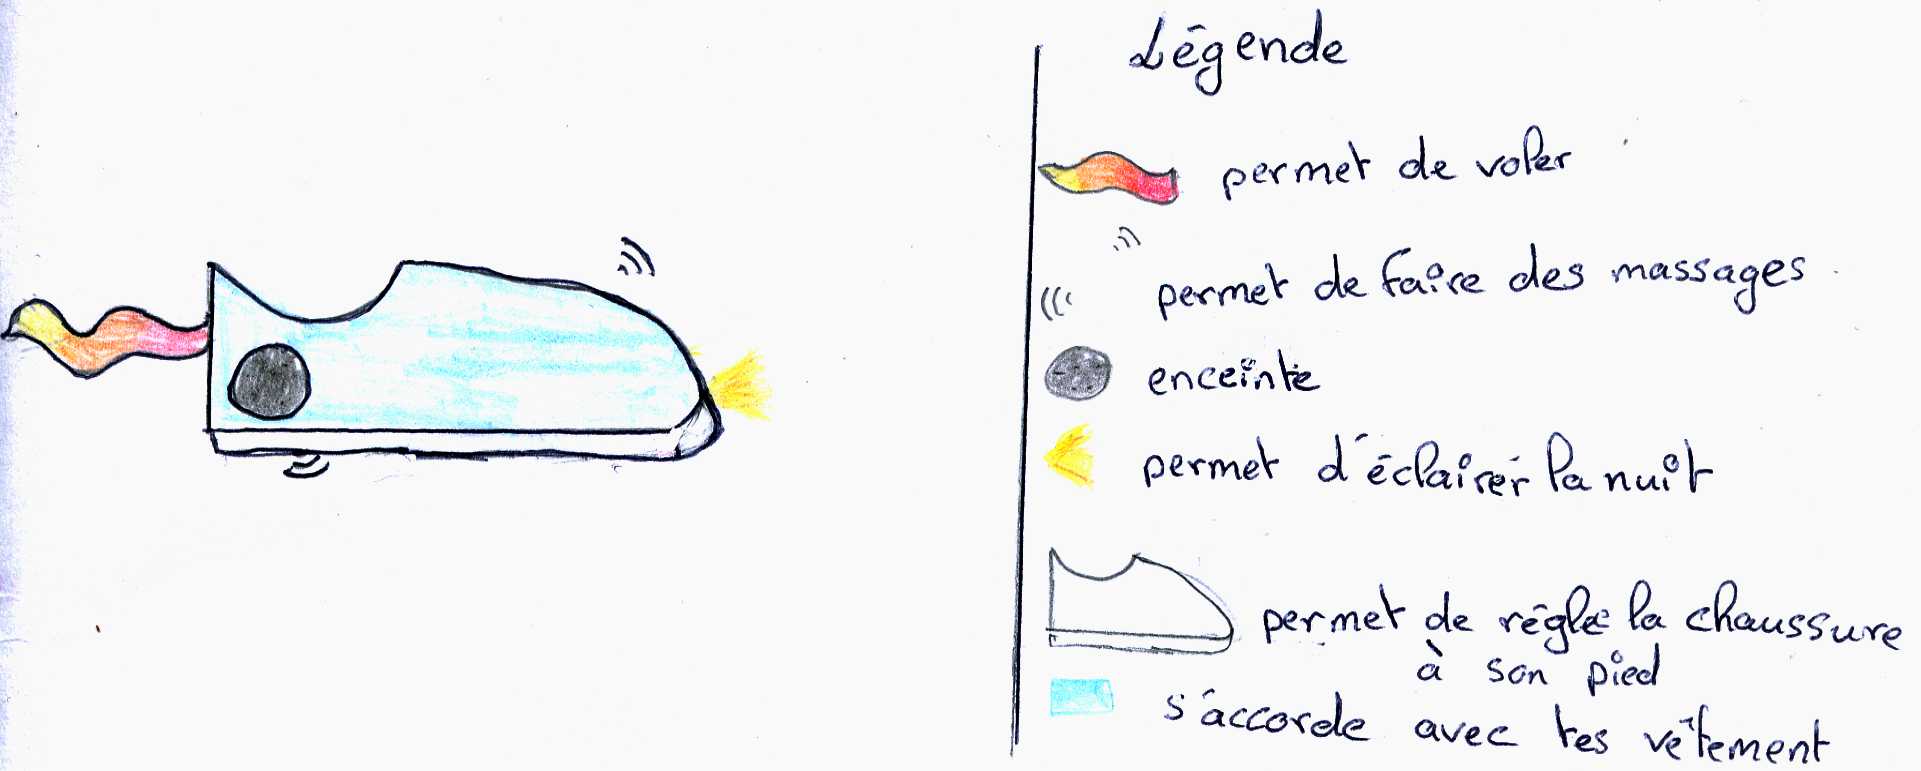 Légende
permet de voler
permet de faire des massages
enceinte
permet d'éclairer la nuit
permet de régle la chaussure
à son pied
s'accorde avec tes vêtement